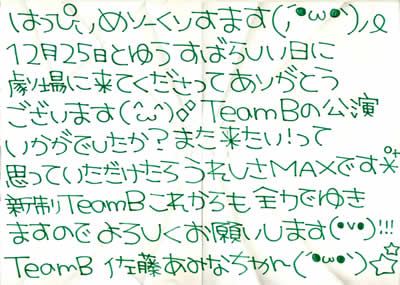 はっぴぃめソーくソすます(´•ω•`)ﾉ♡
12月25日とゆうすばらしい日に
劇場に来てくださってあソがとう
ございます(^ω^)◇ TeamBの公演
いかがでしたか？また来たい！って
思っていただけたらうれしさMAXです*
新制TeamB これからも全力でゆき
ますのでよろしくお願いします(•v•)!!!
TeamB 佐藤あみなちゃん(´•ω•`)☆☆